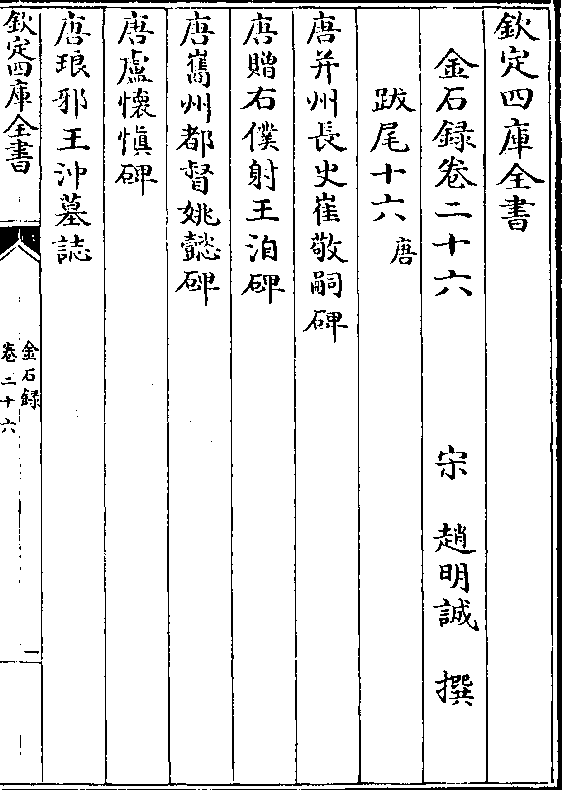 欽定四庫全書
金石錄卷二十六　宋　趙明誠　撰
跋尾十六　唐
唐并州長史崔敬嗣碑
唐贈右僕射王洎碑
唐巂州都督姚懿碑
唐盧懷慎碑
唐琅邪王沖墓誌
欽定四庫全書
金石錄
卷二十六
一